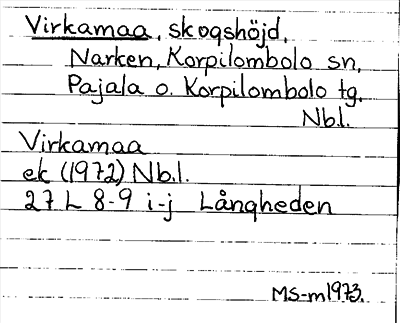 Virkamaa, skogshöjd,
Narken, Korpilombolo sn,
Pajala o. Korpilombolo tg.
Nbl.
Virkamaa
ek (1972) Nb.l.
27 L 8-9 i-j Långheden
MS-m 1973.